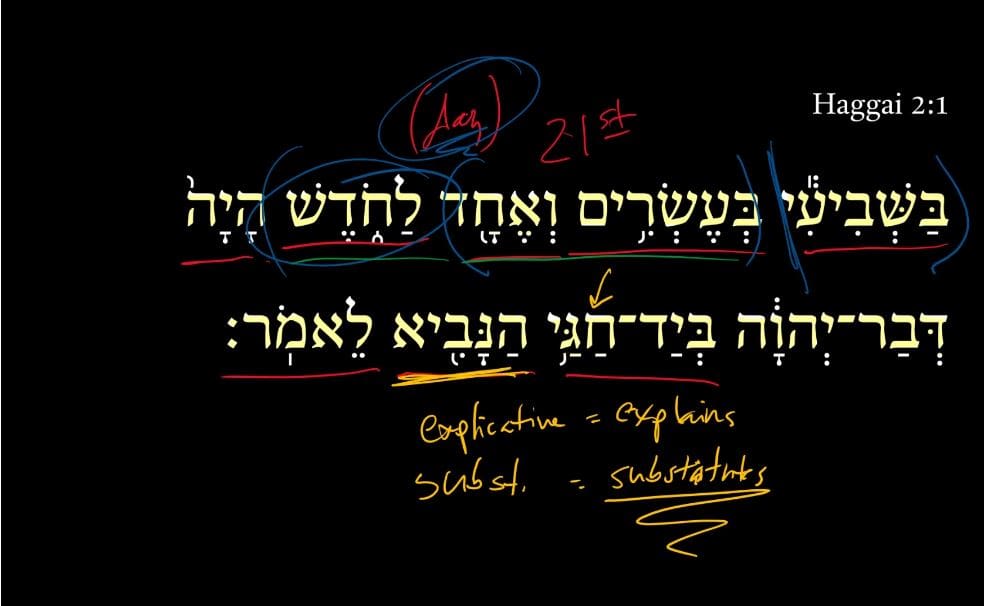 Haggai 2:1
(day) 21st
בַּשְּׁבִיעִ֕י בְּעֶשְׂרִ֥ים וְאֶחָ֖ד לַחֹ֑דֶשׁ הָיָה֙
דְּבַר־יְהוָ֔ה בְּיַד־חַגַּ֥י הַנָּבִ֖יא לֵאמֹֽר׃
explicative = explains
subst. = substitutes